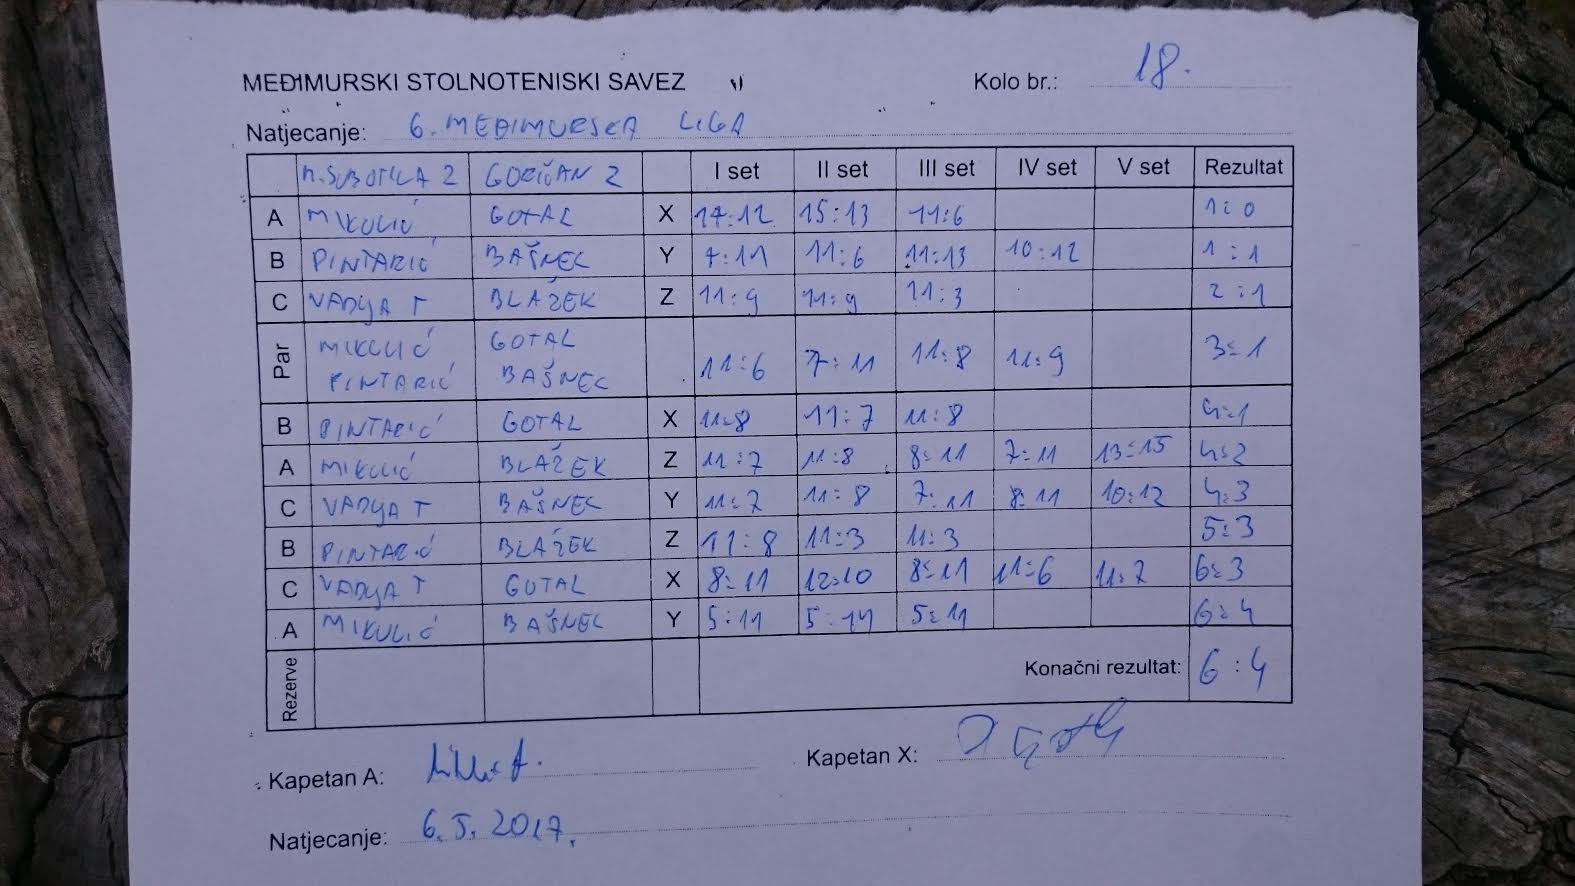 MEĐIMURSKI STOLNOTENISKI SAVEZ Kolo br.: 18.
Natjecanje: 6. MEĐIMURSKA LIGA
M. SUBOTICA 2 GORIČAN 2 I set II set III set IV set V set Rezultat
A MIKULIĆ GOTAL X 14:12 15:13 11:6 1:0
B PINTARIĆ BAŠNEC Y 7:11 11:6 11:13 10:12 1:1
C VADLJA T BLAŽEK Z 11:9 11:9 11:3 2:1
Par MIKULIĆ PINTARIĆ GOTAL BAŠNEC 11:6 7:11 11:8 11:9 3:1
B PINTARIĆ GOTAL X 11:8 11:7 11:8 4:1
A MIKULIĆ BLAŽEK Z 11:7 11:8 8:11 7:11 13:15 4:2
C VADLJA T BAŠNEC Y 11:7 11:8 7:11 8:11 10:12 4:3
B PINTARIĆ BLAŽEK Z 11:8 11:3 11:3 5:3
C VADLJA T GOTAL X 8:11 12:10 8:11 11:6 11:7 6:3
A MIKULIĆ BAŠNEC Y 5:11 5:11 5:11 6:4
Rezerve Konačni rezultat: 6:4
Kapetan A: Kapetan X:
Natjecanje: 6.5.2017.